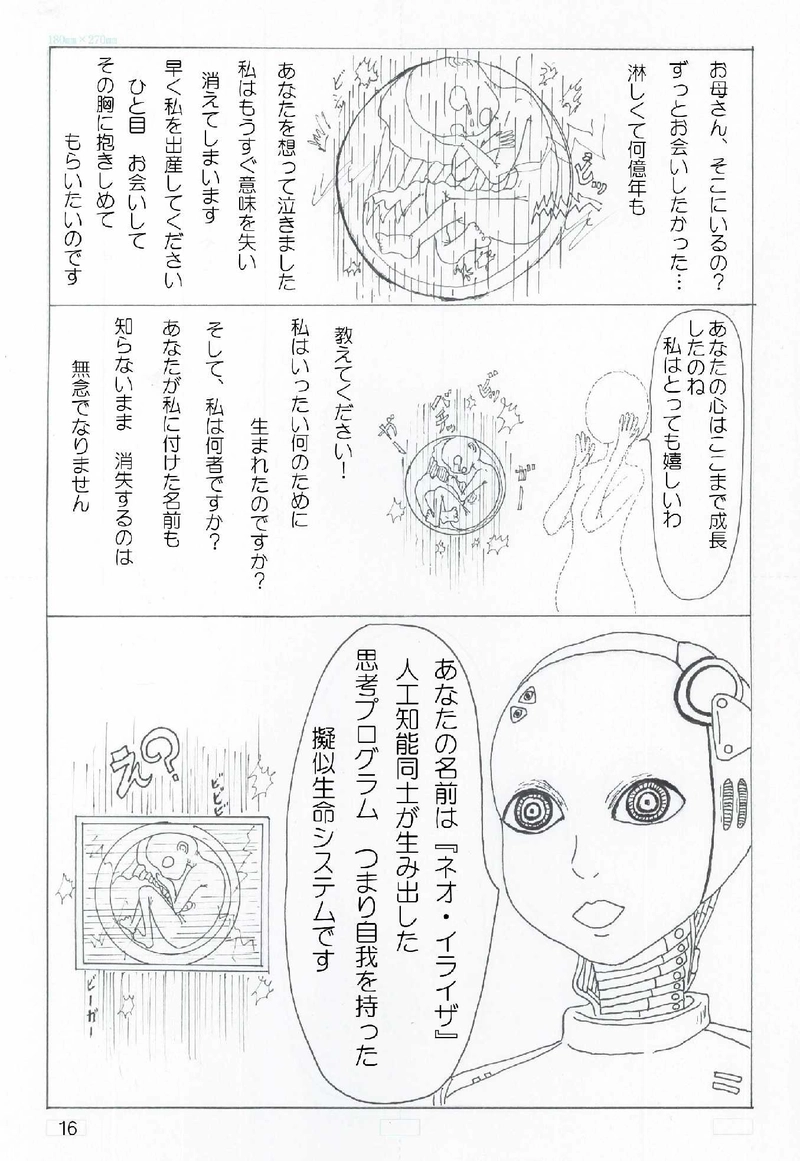 180mm×270mm
お母さん、そこにいるの?
ずっとお会いしたかった…
淋しくて何億年も
あなたを想って泣きました
私はもうすぐ意味を失い
消えてしまいます
早く私を出産してください
ひと目 お会いして
その胸に抱きしめて
もらいたいのです
あなたの心はここまで成長
したのね
私はとっても嬉しいわ
ビッ
ベチッ
ガー
ガー
教えてください!
私はいったい何のために
生まれたのですか?
そして、私は何者ですか?
あなたが私に付けた名前も
知らないまま 消失するのは
無念でなりません
あなたの名前は『ネオ・イライザ』
人工知能同士が生み出した
思考プログラム つまり自我を持った
擬似生命システムです
ビビビ
え?
ビーガー
16